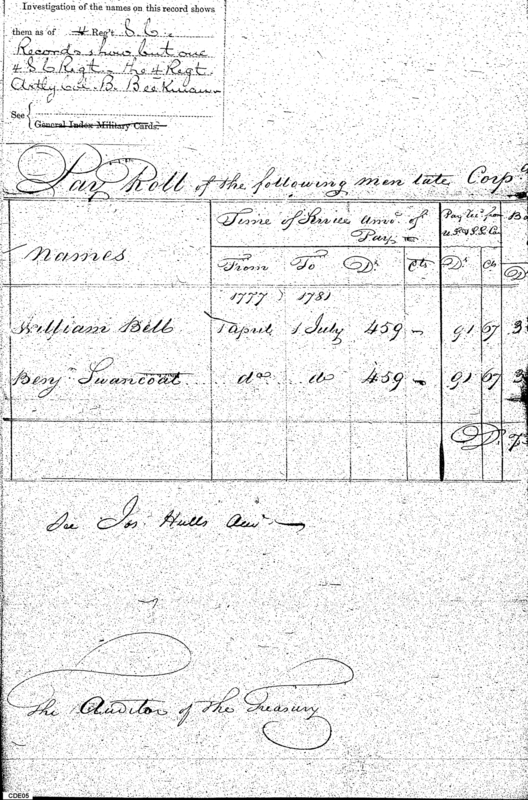 Investigation of the names on this record shows
them as of 4 Reg't S. C.
Records show but one
4 S C Regt - the 4 Regt
Artly Col. B. Beekman
See { General Index Military Cards.
Pay Roll of the following men late Corp.
Names
Time of Service
Amo. of Pay
Pay Rec. from U.S. & S. Ca.
From To Ds. Cts Ds. Cts D
1777 1781
William Bell 1 April 1 July 459 - 91 67 3
Benj Swancoat do do 459 - 91 67 3
Ds. 7
See Jos. Hulls
The Auditor of the Treasury
CDE05